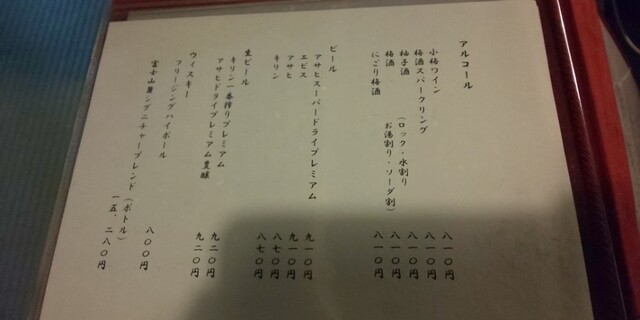 アルコール
小梅ワイン 八一〇円
梅酒スパークリング 八一〇円
柚子酒 (ロック・水割り 八一〇円
梅酒 お湯割り・ソーダ割) 八一〇円
にごり梅酒 八一〇円
ビール
アサヒスーパードライプレミアム 九一〇円
エビス 九一〇円
アサヒ 八七〇円
キリン 八七〇円
生ビール
キリン一番搾りプレミアム 九二〇円
アサヒドライプレミアム豊醸 九二〇円
ウィスキー
フリージングハイボール 八〇〇円
富士山麓シグニチャーブレンド (ボトル)
一五、二八〇円